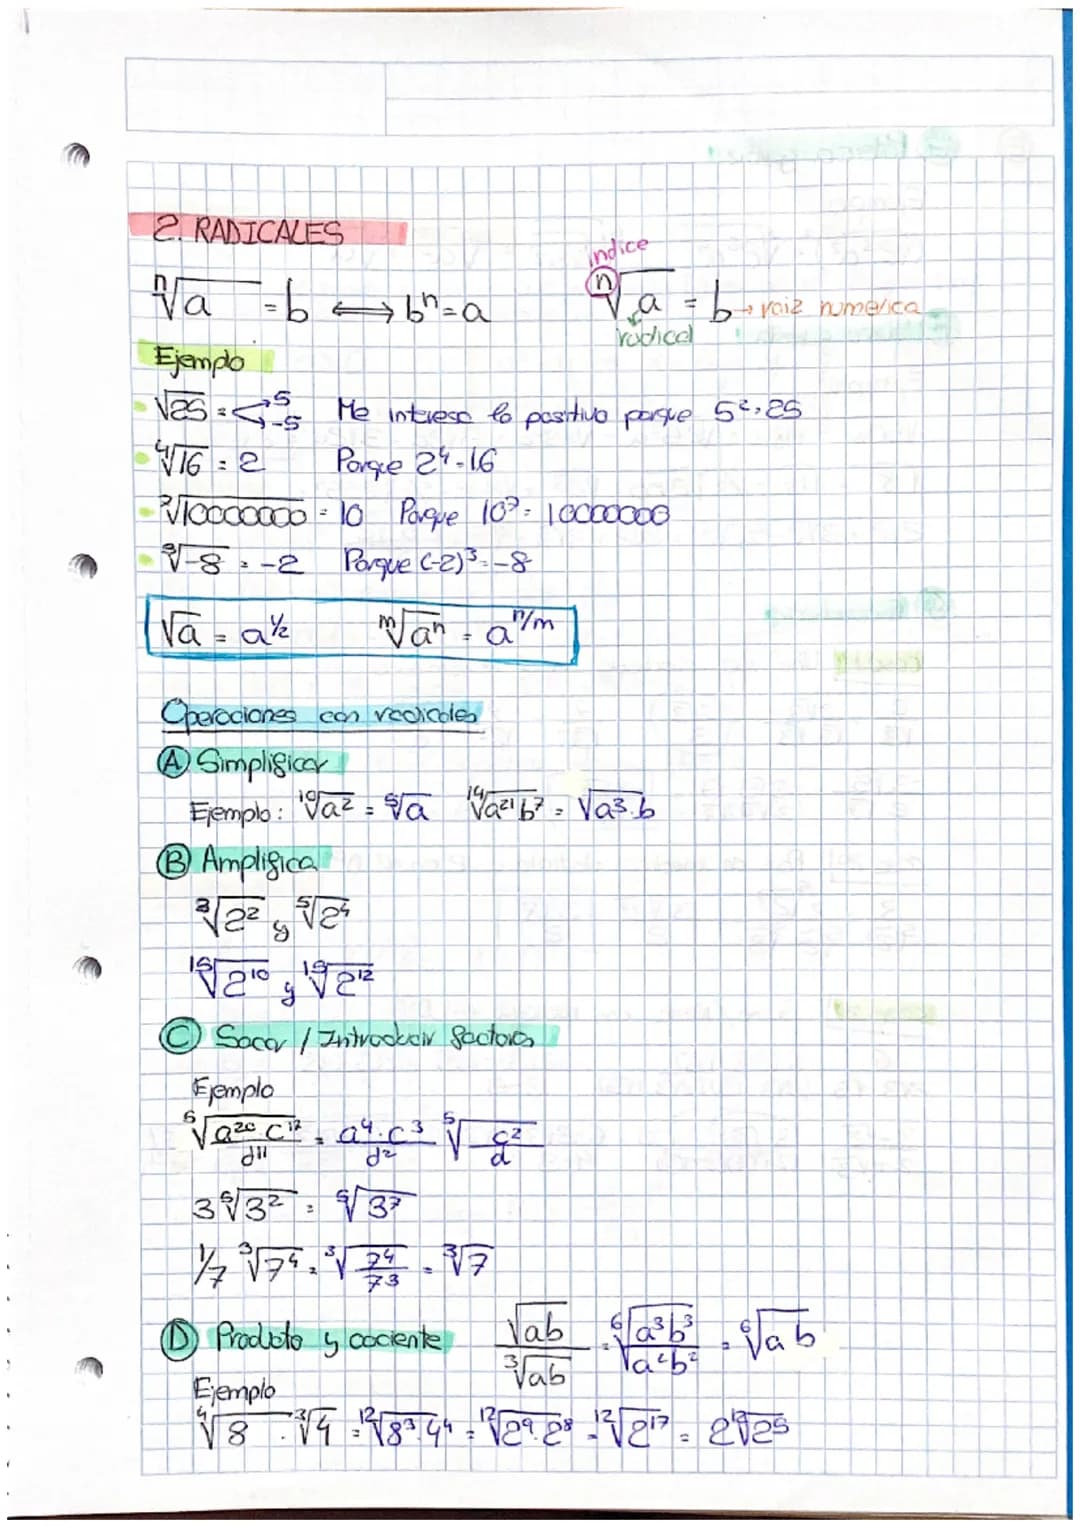 2. RADICALES
índice
ⁿ√a = b ⟷ bⁿ = a
ⁿ√a = b → raiz numerica
radical
Ejemplo
√25 = 5 -5 Me interesa lo positivo porque 5² = 25
⁴√16 = 2 Porque 2⁴ = 16
⁷√10000000 = 10 Porque 10⁷ = 10000000
³√-8 = -2 Porque (-2)³ = -8
√a = a^1/2 ᵐ√aⁿ = a^n/m
Operaciones con radicales
A Simplificar
Ejemplo: ¹⁰√a² = ⁵√a ¹⁴√a²¹b⁷ = √a³·b
B Amplifica
³√2² y ⁵√2⁴
¹⁵√2¹⁰ y ¹⁵√2¹²
C Sacar / Introducir factores
Ejemplo
⁵√(a²⁰ c¹⁷ / d¹¹) = (a⁴·c³ / d²) ⁵√(c² / d)
3 ⁵√3² = ⁵√3⁷
1/7 ³√7⁴ = ³√(7⁴ / 7³) = ³√7
D Producto y cociente √ab / ³√ab = ⁶√(a³b³ / a²b²) = ⁶√ab
Ejemplo
⁴√8 · ³√4 = ¹²√8³·4⁴ = ¹²√2⁹·2⁸ = ¹²√2¹⁷ = 2 ¹²√2⁵